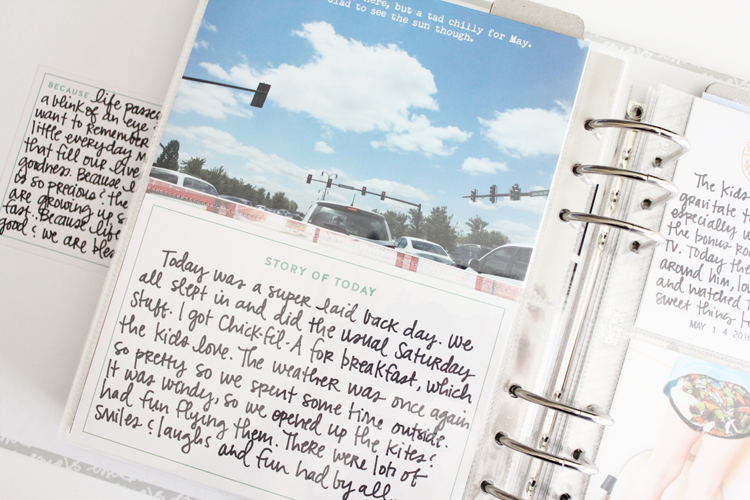 BECAUSE life passes
a blink of an eye
want to remember
little everyday
that fill our
goodness. Because
is so precious! the
are growing up s
fast. Because life
good & we are
here, but a tad chilly for May.
Glad to see the sun though.
STORY OF TODAY
Today was a super laid back day. We
all slept in and did the usual Saturday
stuff. I got Chick-fil-A for breakfast, which
the kids love. The weather was once again
so pretty so we spent some time outside.
It was windy, so we opened up the kites &
had fun flying them. There were lots of
smiles & laughs and fun had by all.
The kids
gravitate
especially w
the bonus
TV. Today the
around him, lo
and watched,
sweet things
MAY 14 2016